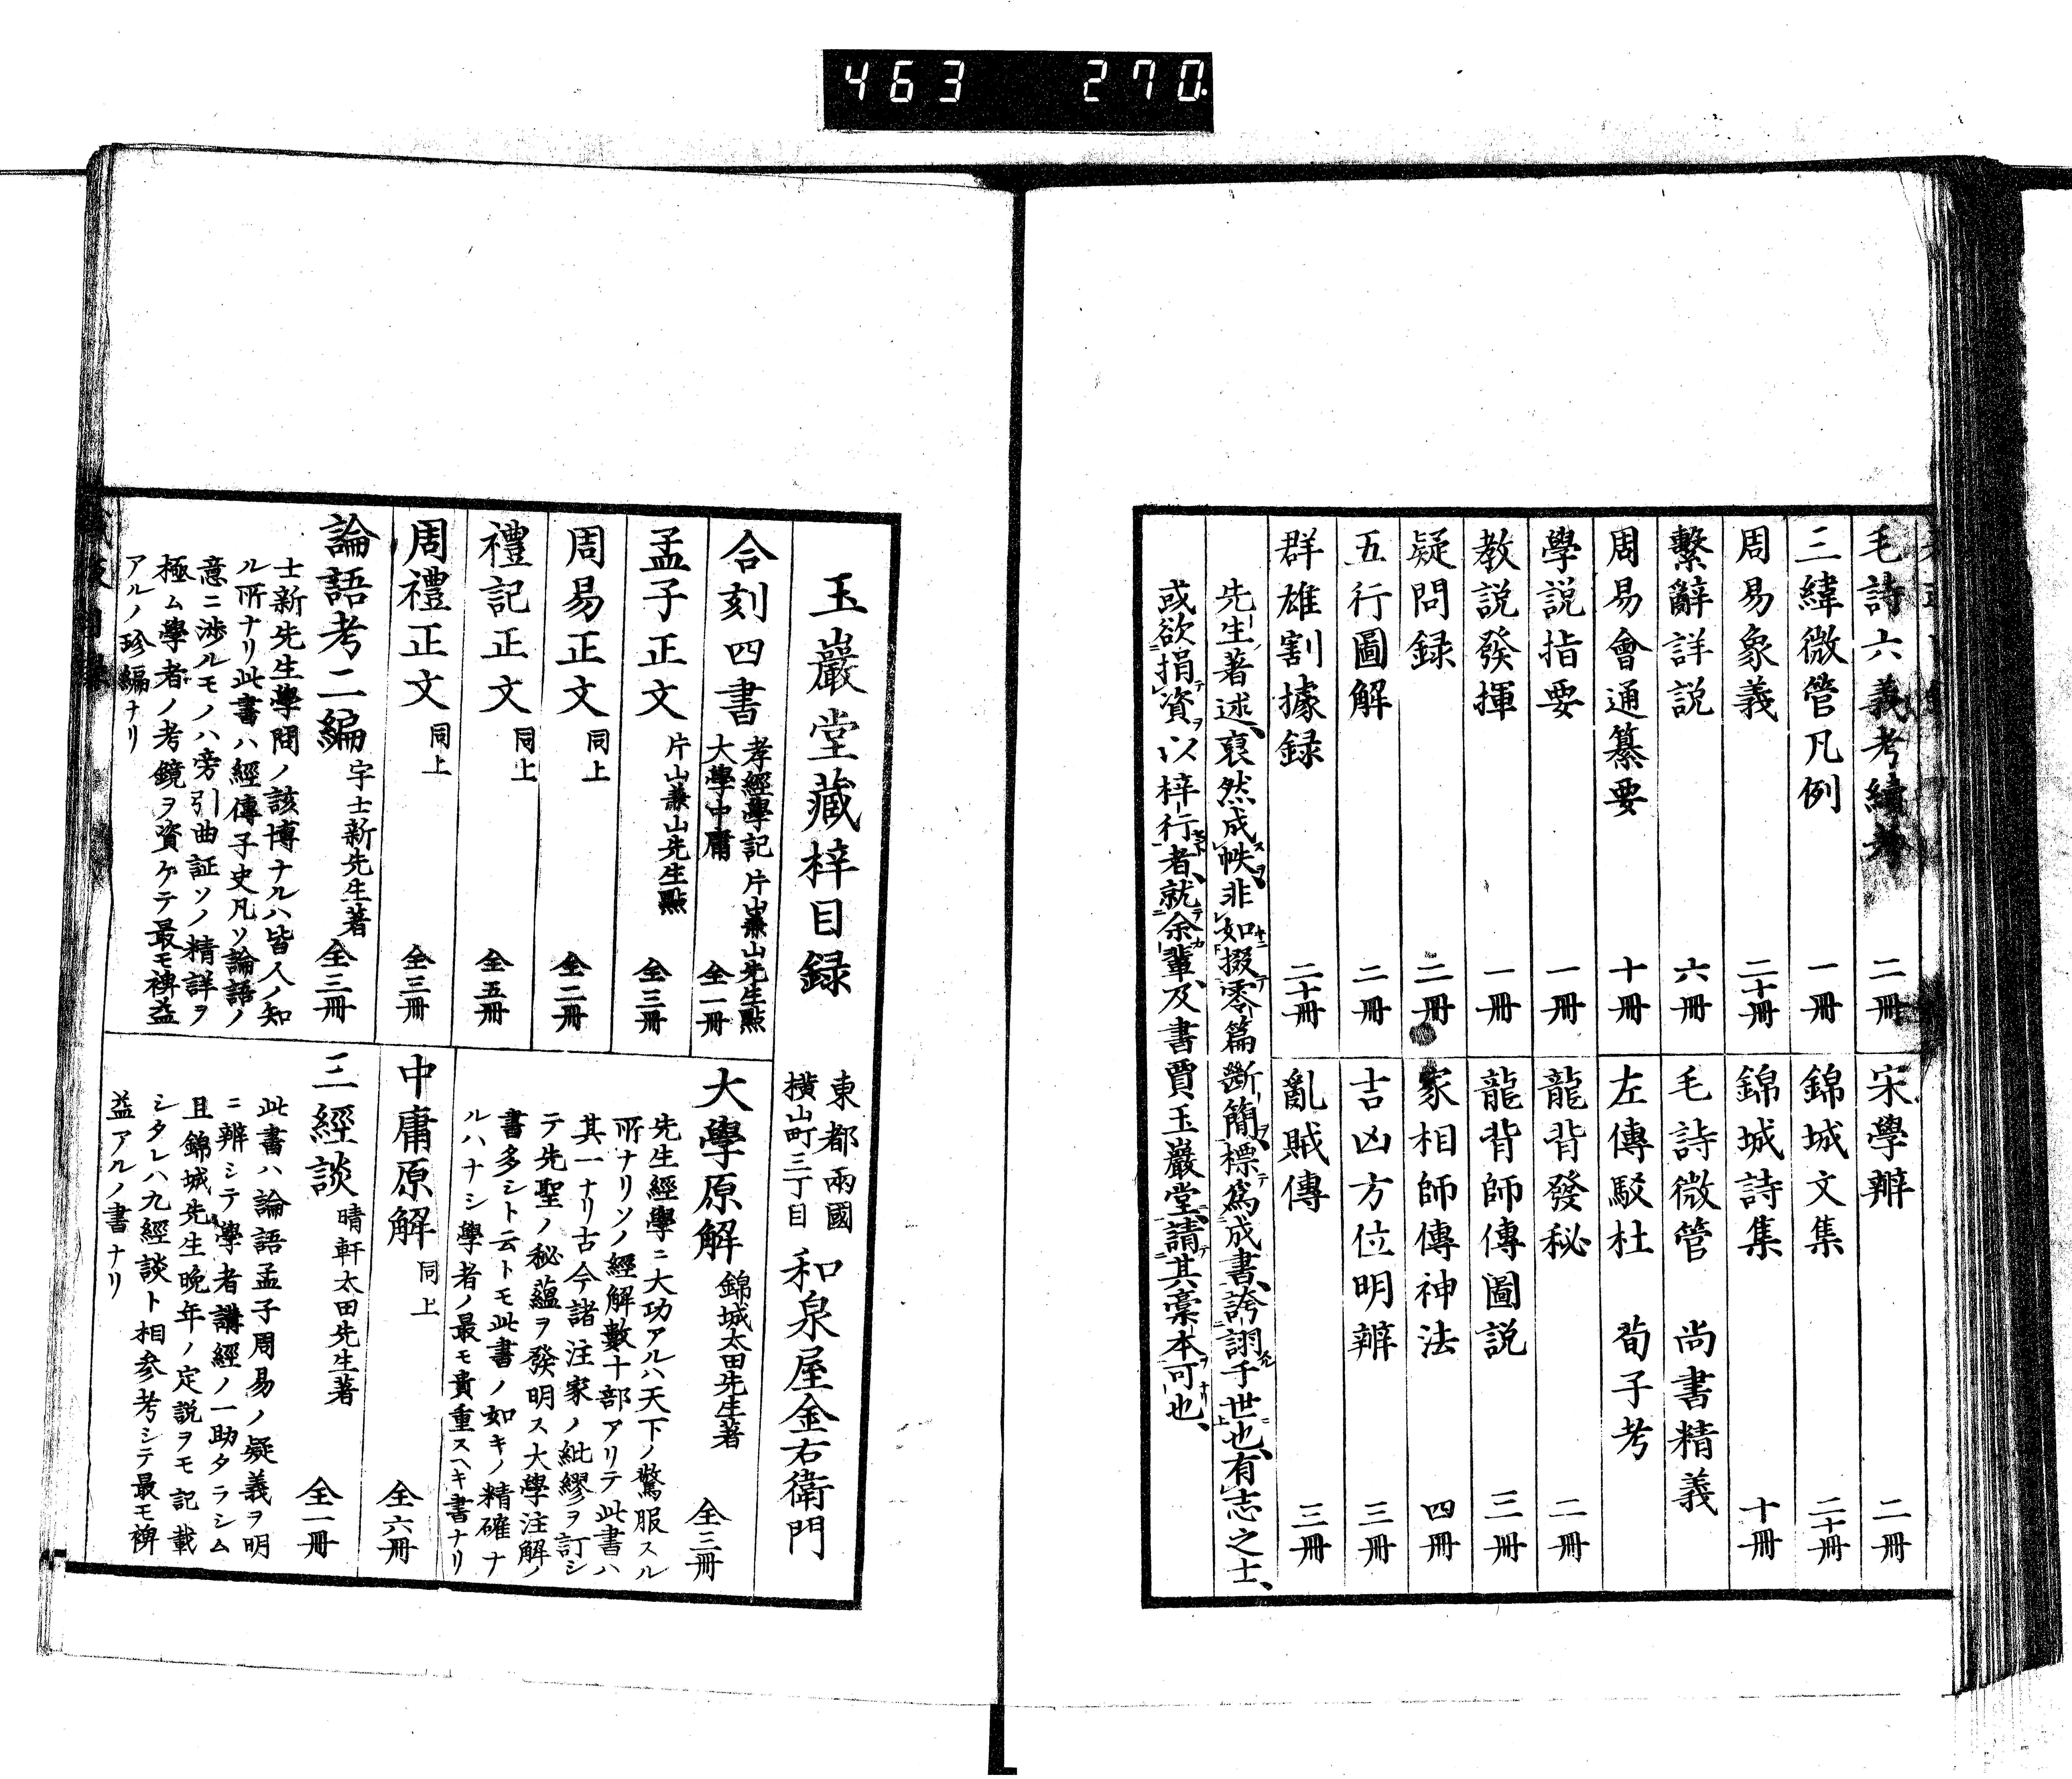 463 270
毛詩六義考續考 二冊
三緯微管凡例 一冊
周易象義 二十冊
繫辭詳説 六冊
周易會通纂要 十冊
學説指要 一冊
教説發揮 一冊
疑問録 二冊
五行圖解 二冊
群雄割據録 二十冊
宋學辨 二冊
錦城文集 二十冊
錦城詩集 十冊
毛詩微管 尚書精義
左傳駁杜 荀子考
龍背發秘 二冊
龍背師傳圖説 三冊
家相師傳神法 四冊
吉凶方位明辨 三冊
亂賊傳 三冊
先生著述、裒然成帙、非如掇零篇斷簡、標爲成書、誇詡乎世也、有志之士、
或欲捐資以梓行者、就余輩及書賈玉巖堂、請其稾本可也、
玉巖堂藏梓目録
東都兩國
横山町三丁目
和泉屋金右衛門
合刻四書
孝經學記
大學中庸
片山兼山先生點
全一冊
孟子正文 片山兼山先生點 全三冊
周易正文 同上 全二冊
禮記正文 同上 全五冊
周禮正文 同上 全三冊
論語考二編 宇士新先生著 全三冊
士新先生學問ノ該博ナルハ皆人ノ知
ル所ナリ此書ハ經傳子史凡ソ論語ノ
意ニ渉ルモノハ旁引曲証ソノ精詳ヲ
極ム學者ノ考鏡ヲ資ケテ最モ裨益
アルノ珍編ナリ
大學原解 錦城太田先生著 全三冊
先生經學ニ大功アルハ天下ノ驚服スル
所ナリソノ經解數十部アリテ此書ハ
其一ナリ古今諸注家ノ紕繆ヲ訂シ
テ先聖ノ秘蘊ヲ發明ス大學注解ノ
書多シト云トモ此書ノ如キノ精確ナ
ルハナシ學者ノ最モ貴重スヘキ書ナリ
中庸原解 同上 全六冊
三經談 晴軒太田先生著 全一冊
此書ハ論語孟子周易ノ疑義ヲ明
ニ辨シテ學者講經ノ一助タラシム
且錦城先生晩年ノ定説ヲモ記載
シタレハ九經談ト相参考シテ最モ裨
益アルノ書ナリ